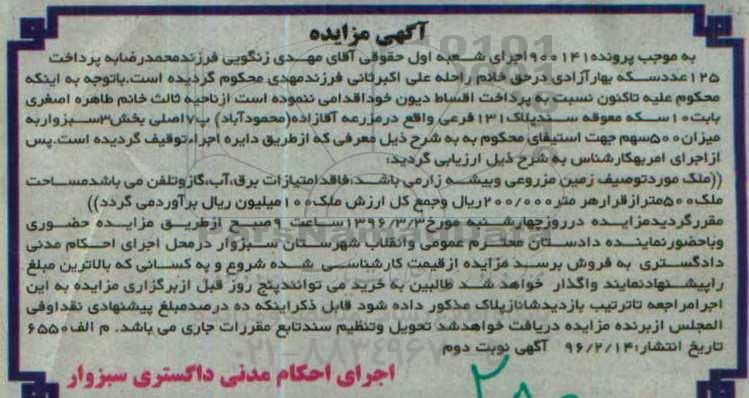 آگهی مزایده
به موجب پرونده ۹۰۰۱۴۱ اجرای شعبه اول حقوقی آقای مهدی زنگویی فرزندمحمدرضابه پرداخت
۱۲۵عددسکه بهارآزادی درحق خانم راحله علی اکبرثانی فرزندمهدی محکوم گردیده است.باتوجه به اینکه
محکوم علیه تاکنون نسبت به پرداخت اقساط دیون خوداقدامی ننموده است ازناحیه ثالث خانم طاهره اصغری
بابت۱۰سکه معوقه سندپلاک۱۳۱ فرعی واقع درمزرعه آقازاده(محمودآباد) پ۷اصلی بخش۳سبزواربه
میزان۵۰۰سهم جهت استیفای محکوم به به شرح ذیل معرفی که ازطریق دایره اجراءتوقیف گردیده است.پس
ازاجرای امربهکارشناس به شرح ذیل ارزیابی گردید:
((ملک موردتوصیف زمین مزروعی وبیشه زارمی باشد،فاقدامتیازات برق،آب،گازوتلفن می باشدمساحت
ملک۵۰۰مترازقرارهر متر۲۰۰/۰۰۰ریال وجمع کل ارزش ملک۱۰۰میلیون ریال برآوردمی گردد))
مقررگردیدمزایده درروزچهارشنبه مورخ۱۳۹۶/۳/۳ساعت ۹صبح ازطریق مزایده حضوری
وباحضورنماینده دادستان محترم عمومی وانقلاب شهرستان سبزوار درمحل اجرای احکام مدنی
دادگستری به فروش برسد مزایده ازقیمت کارشناسی شده شروع و به کسانی که بالاترین مبلغ
راپیشنهادنمایند واگذار خواهد شد طالبین به خرید می توانندپنج روز قبل ازبرگزاری مزایده به این
اجرامراجعه تاترتیب بازدیدشانازپلاک مذکور داده شود قابل ذکراینکه ده درصدمبلغ پیشنهادی نقداوفی
المجلس ازبرنده مزایده دریافت خواهدشد تحویل وتنظیم سندتابع مقررات جاری می باشد. م الف۶۵۵۰
تاریخ انتشار:۹۶/۲/۱۴ آگهی نوبت دوم
اجرای احکام مدنی داگستری سبزوار